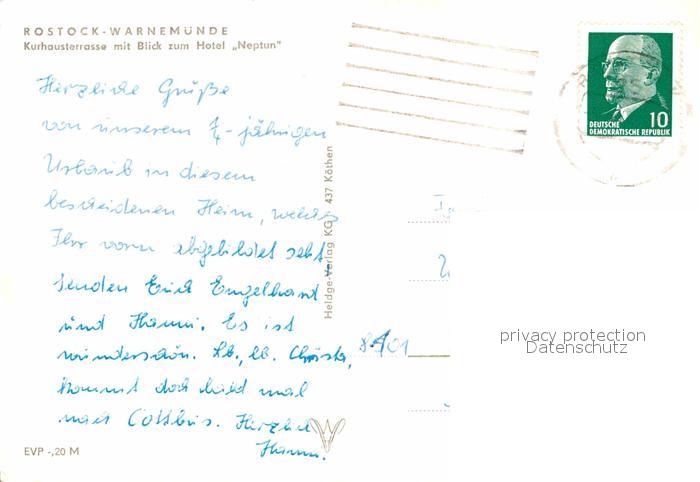 ROSTOCK-WARNEMÜNDE
Kurhausterrasse mit Blick zum Hotel „Neptun"
Herzliche Grüße
von unserem 7-jährigen
Urlaub in diesem
bescheidenen Heim, welches
Ihr vorn abgebildet seht,
senden Erich Engelhard
und Hanni. Es ist
wunderschön. Lb., lb. Christa,
kommt doch bald mal
nach Cottbus. Herzlich
Hanni.
EVP -,20 M
Heldge-Verlag KG, 437 Köthen
DEUTSCHE
DEMOKRATISCHE REPUBLIK
10
8401
privacy protection
Datenschutz